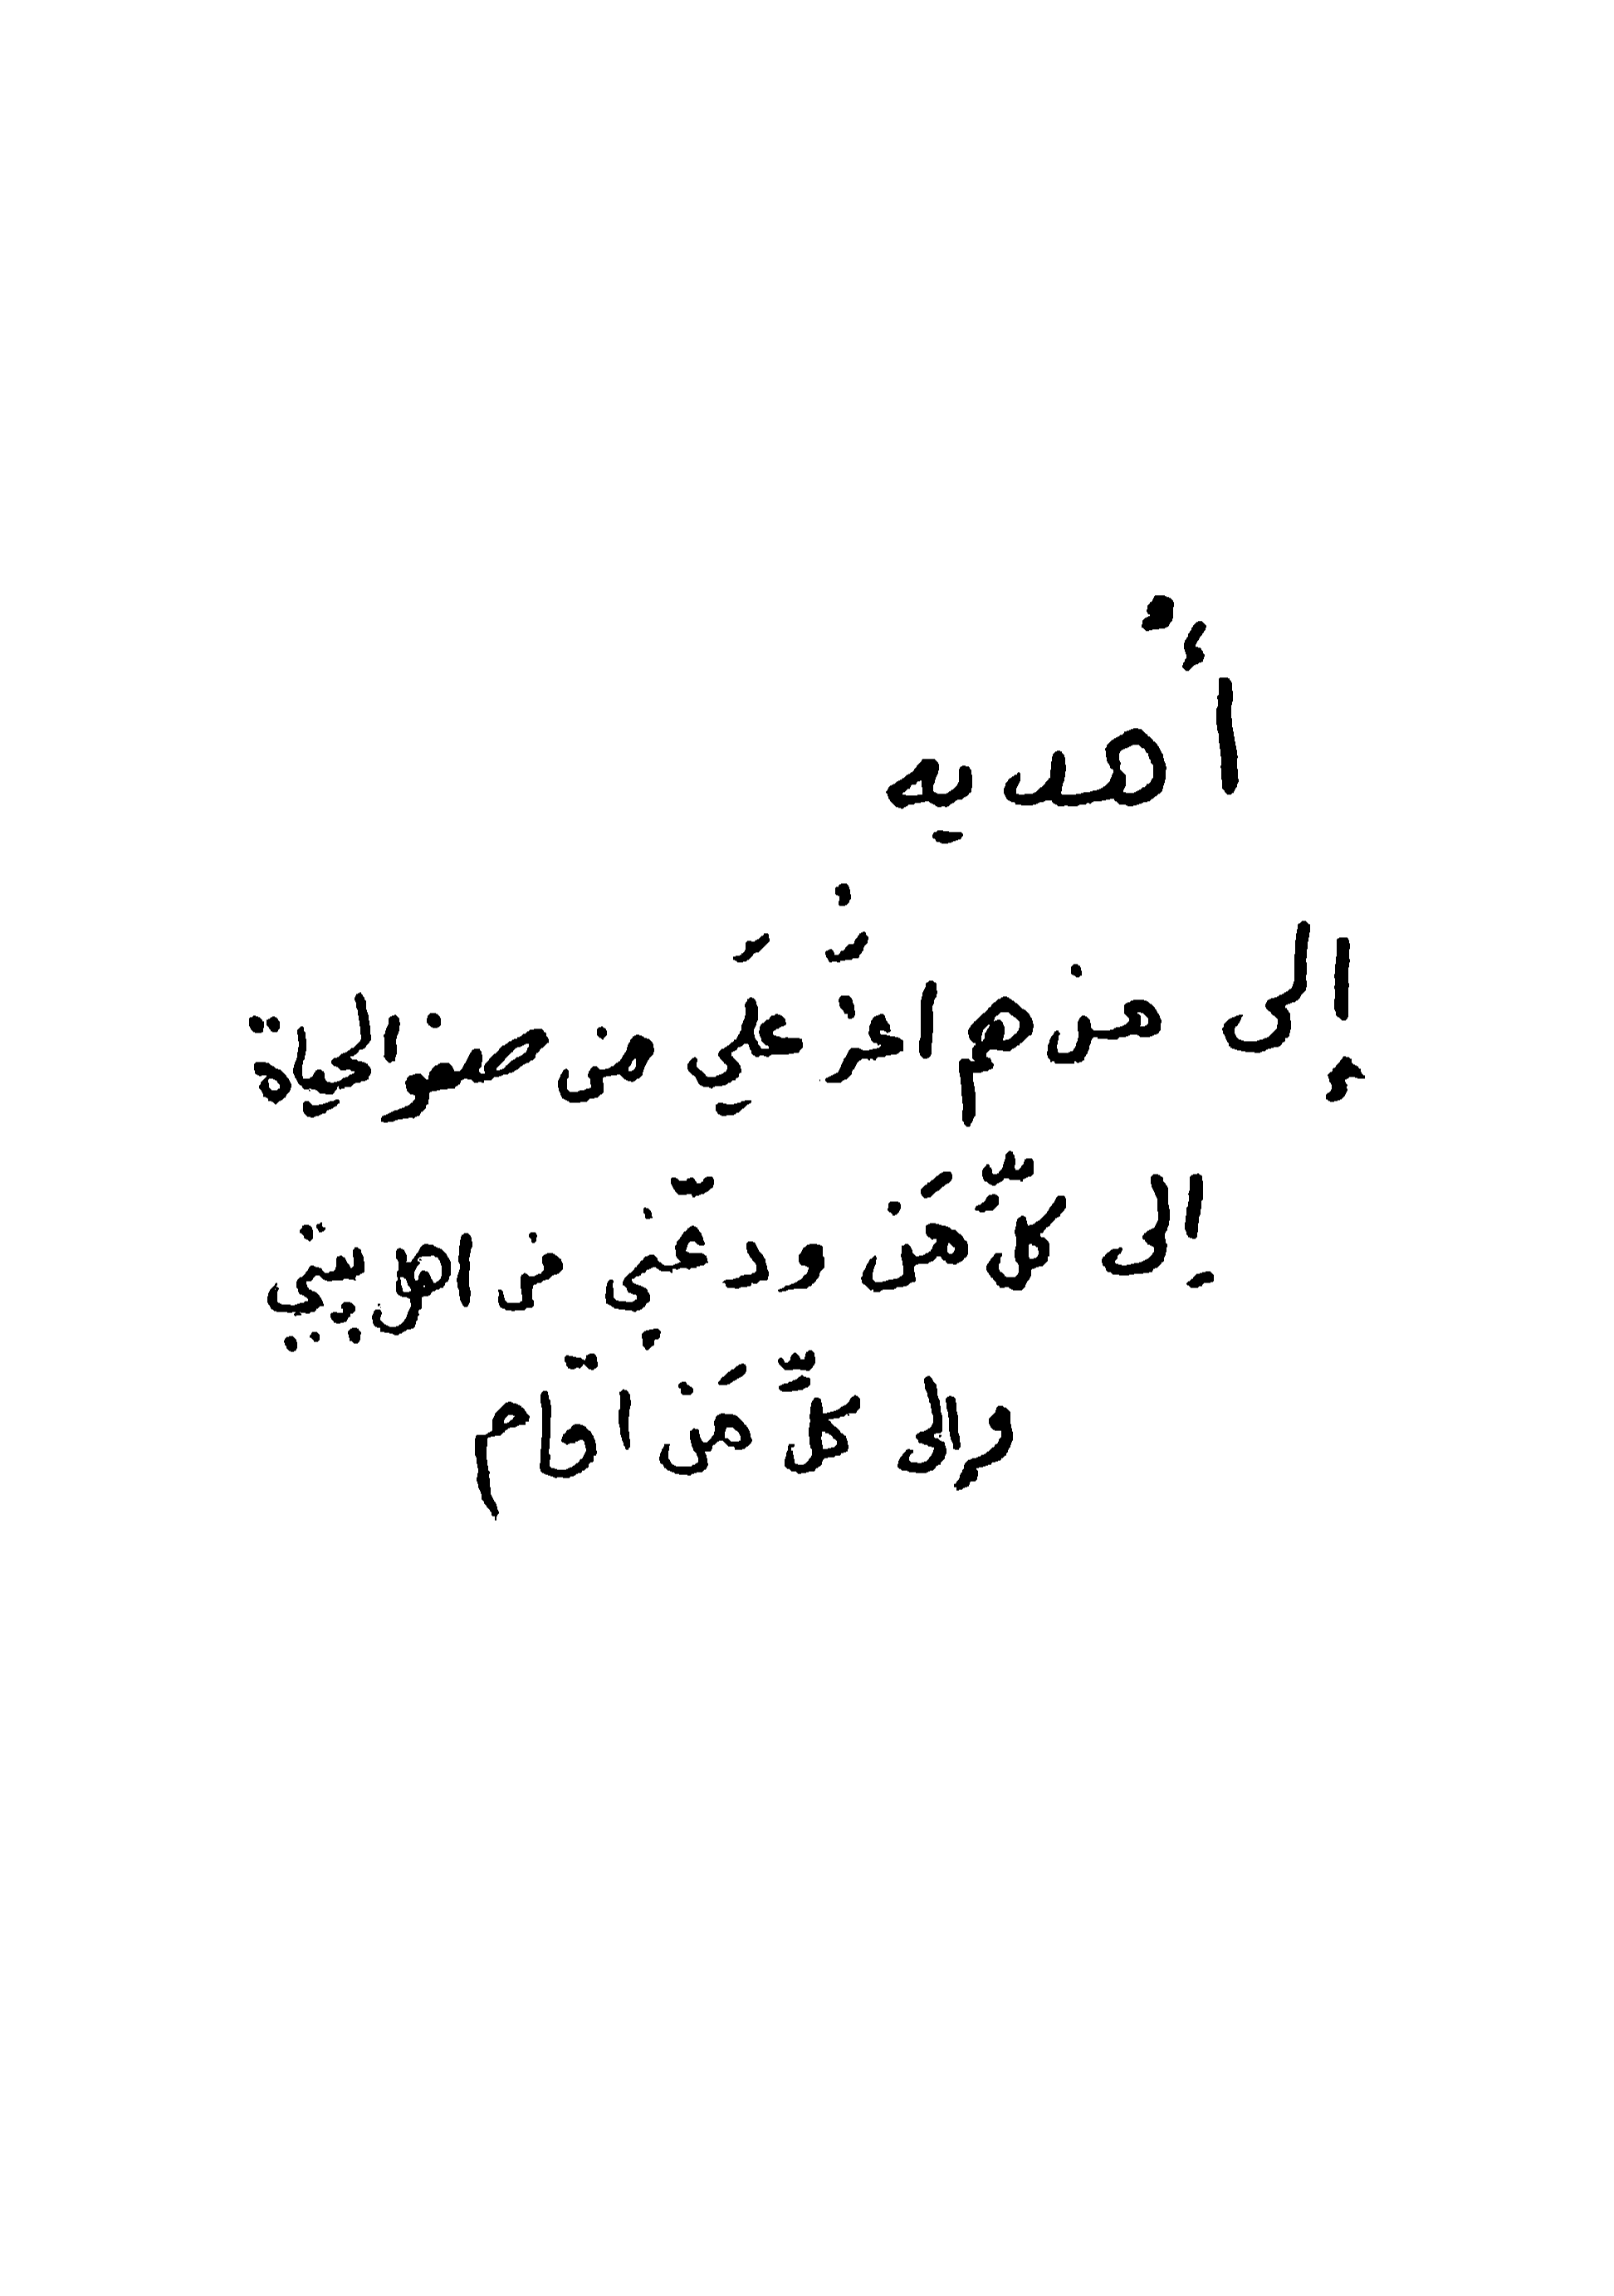 أُهديه
إلى من هم اعزُّ عليَّ من صفو الحياة
إلى كلِّ مَن ودّعني من اهل بيتي
وإلى كلِّ مَن اقام